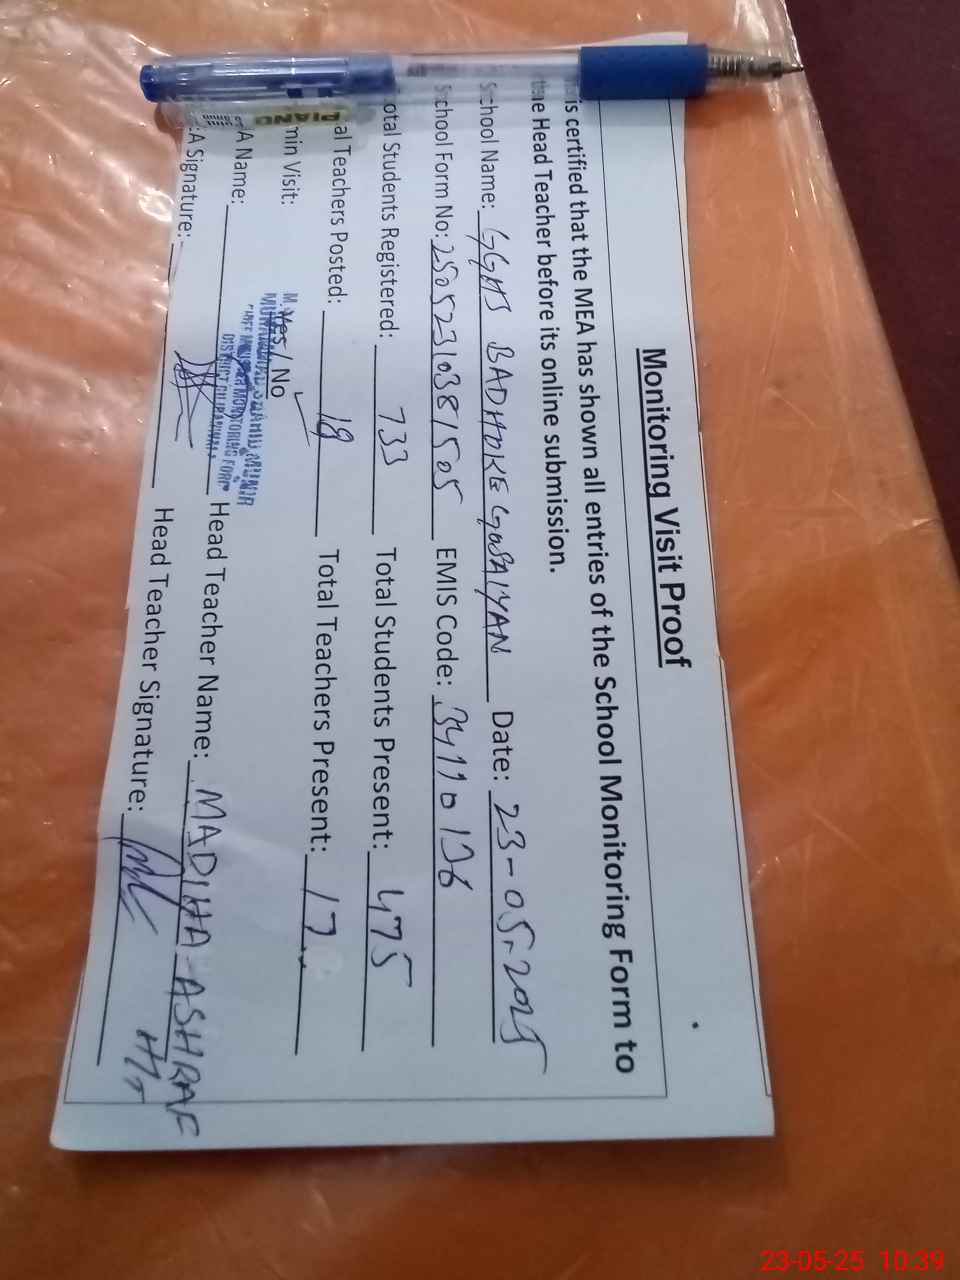 Monitoring Visit Proof
is certified that the MEA has shown all entries of the School Monitoring Form to
the Head Teacher before its online submission.
School Name: GGHS BADHOKE GOSAIYAN Date: 23-05-2025
School Form No: 25052310381505 EMIS Code: 34110126
otal Students Registered: 733 Total Students Present: 475
al Teachers Posted: 18 Total Teachers Present: 17
min Visit: Yes/ No
A Name: MUHAMMAD SHAHID MUNIR Head Teacher Name: MADIHA ASHRAF
DISTRICT
A Signature: Head Teacher Signature: HT
PIANO
23-05-25 10:39